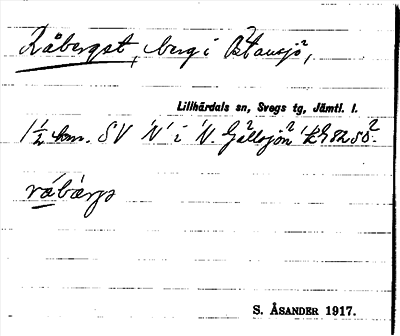 Råbergst, berg i Östansjö,
Lillhärdals sn, Svegs tg, Jämtl. l.
1½ km. SV 'N' i 'N.
råbærgs
S. ÅSANDER 1917.